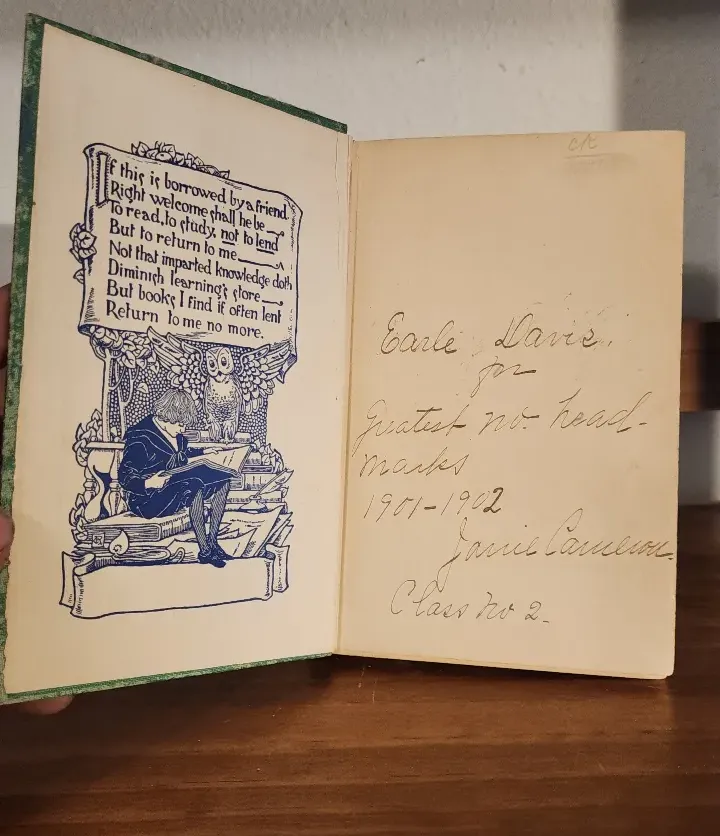 If this is borrowed by a friend
Right welcome shall he be
To read, to study, not to lend
But to return to me
Not that imparted knowledge doth
Diminish learning's store
But books I find if often lent
Return to me no more.
CK
Earle Davis.
for
Greatest no. head-
marks
1901-1902
Janie Cameron.
Class no 2.